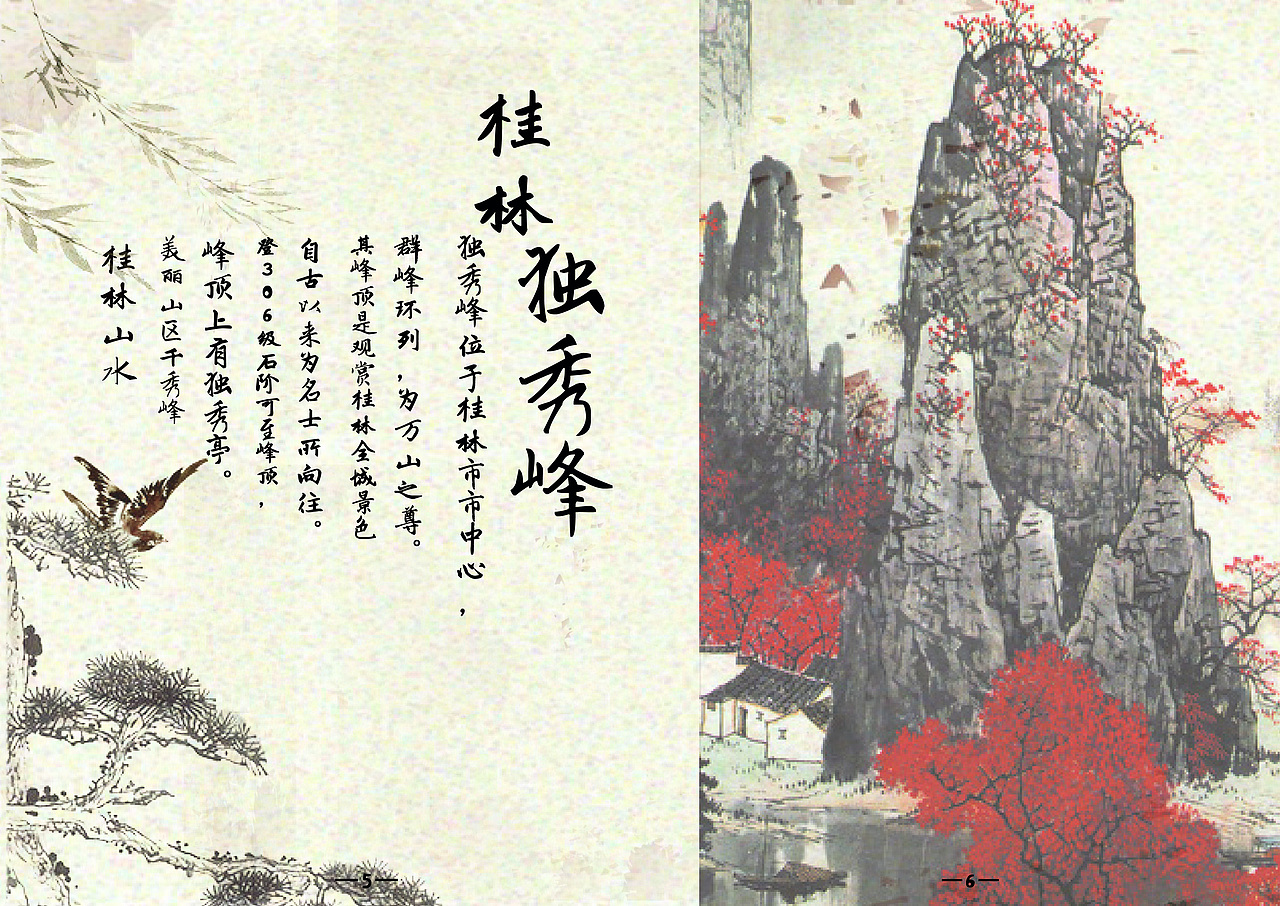 桂林
独秀峰
独秀峰位于桂林市市中心，
群峰环列，为万山之尊。
其峰顶是观赏桂林全城景色
自古以来为名士所向往。
登306级石阶可至峰顶，
峰顶上有独秀亭。
美丽山区千秀峰
桂林山水
5
6